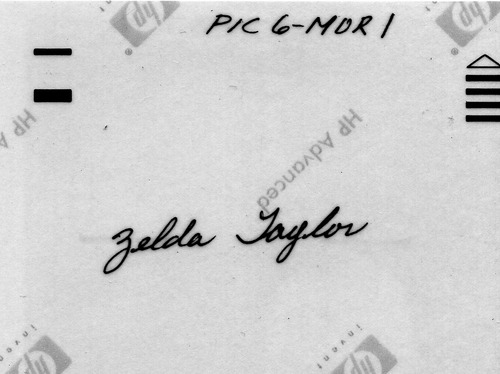 PIC 6-MOR 1
hp
hp
HP Advanced
HP Advanced
Zelda Taylor
invent
hp
invent
hp